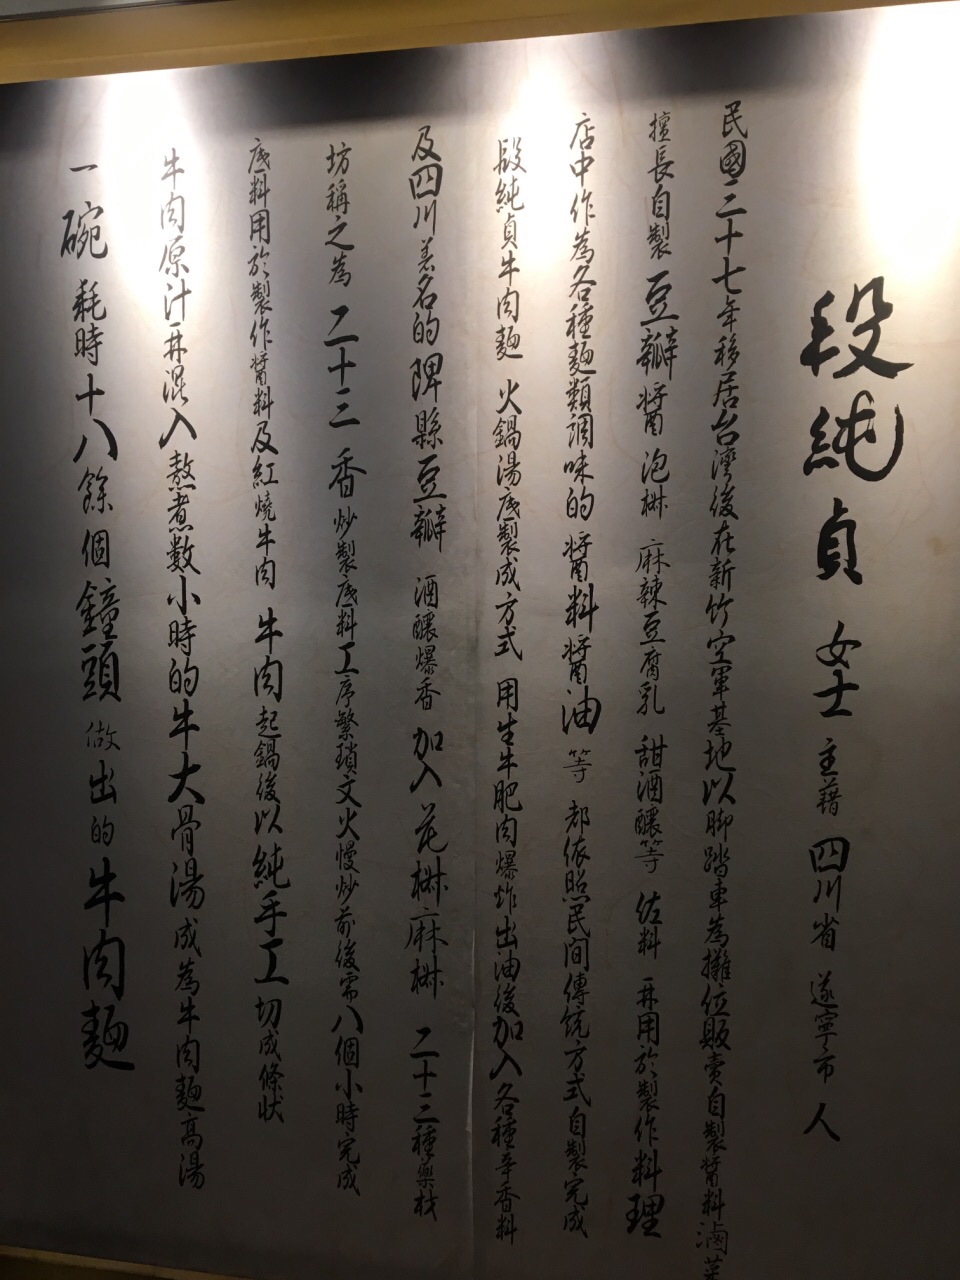 段純貞女士 主藉 四川省 遂寧市 人
民國三十七年移居台灣後在新竹空軍基地以脚踏車為攤位販賣自製醬料滷菜
擅長自製 豆瓣醬 泡椒 麻辣豆腐乳 甜酒釀等 佐料 并用於製作料理
店中作為各種麵類調味的 醬料醬油等 都依照民间傳統方式自製完成
段純貞牛肉麵 火鍋湯底製成方式 用生牛肥肉爆炸出油後加入各種辛香料
及四川著名的 郫縣豆瓣 酒釀爆香 加入花椒麻椒 二十三種藥材
坊稱之為 二十三 香 炒製底料工序繁瑣文火慢炒前後需八個小時完成
底料用於製作醬料及紅燒牛肉 牛肉起鍋後以純手工切成條狀
牛肉原汁并混入熬煮數小時的牛大骨湯成為牛肉麵高湯
一碗耗時十八餘個鐘頭做出的牛肉麵